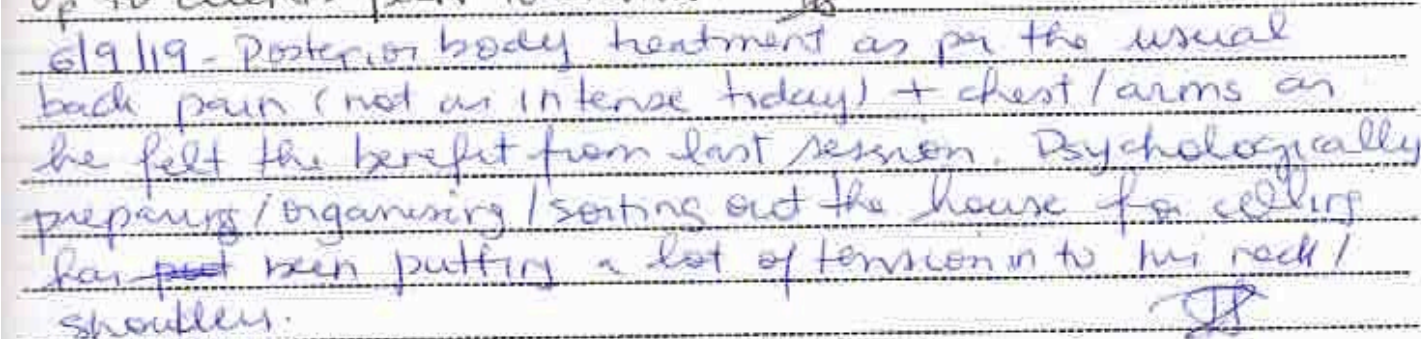 up to
6/9/19 - Posterior body treatment as per the usual
back pain (not as intense today) + chest/arms as
he felt the benefit from last session. Psychologically
preparing/organising/sorting out the house for selling
has put been putting a lot of tension in to his neck/
shoulders.